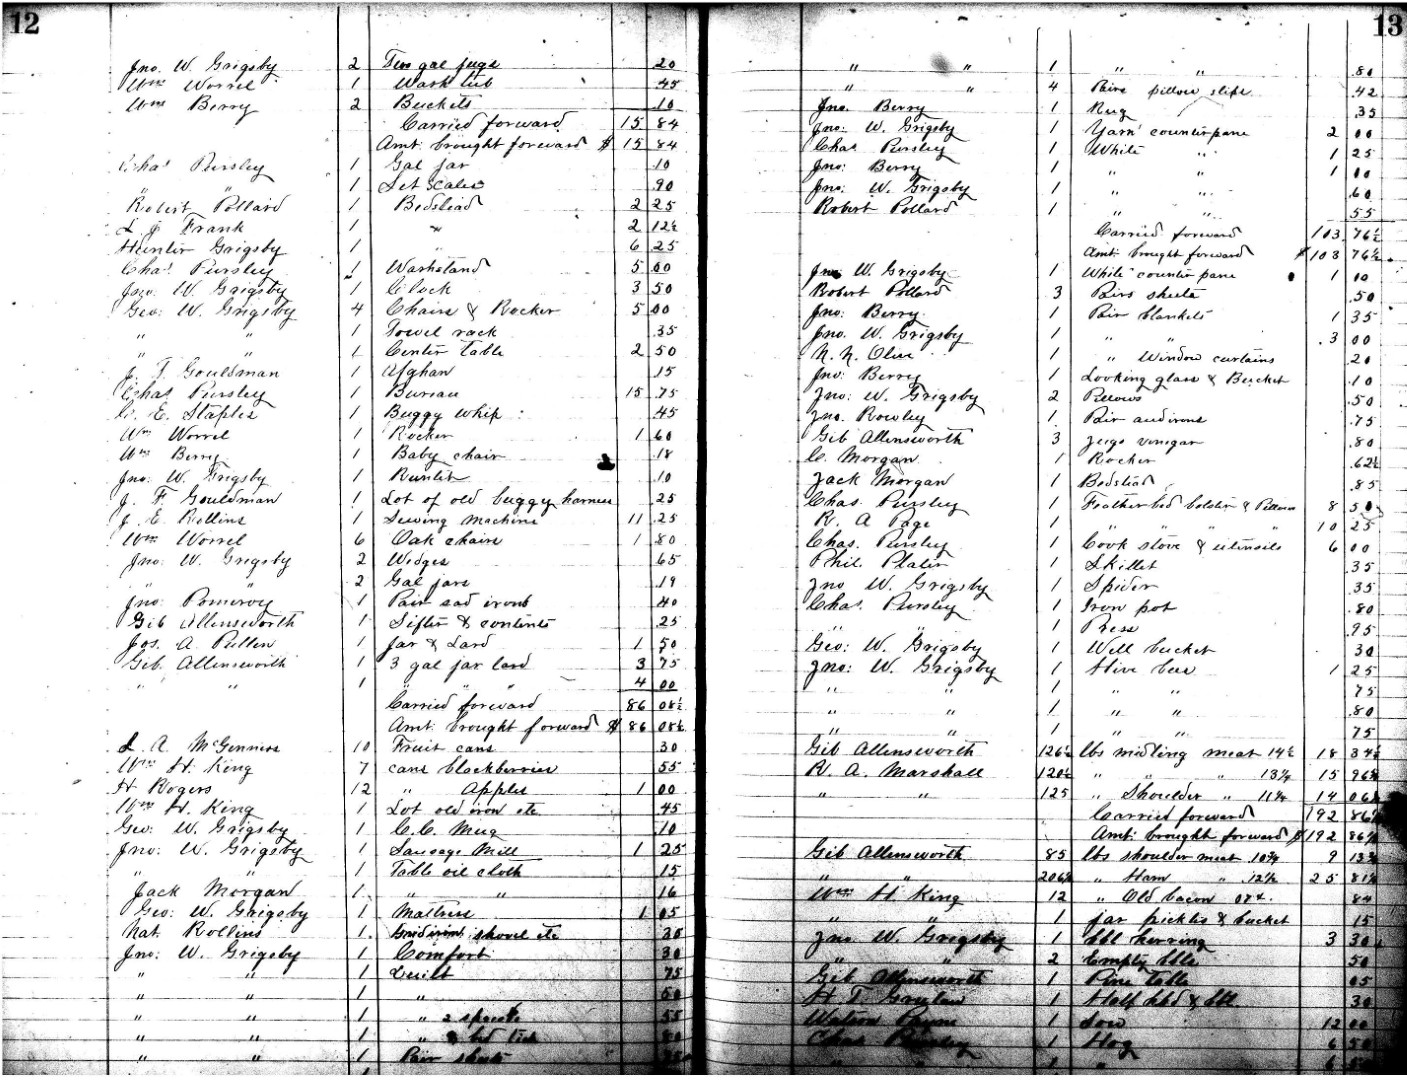 12
Jno. W. Grigsby 2 Ten gal jugs .20
Wm Worrel 1 Wash tub .45
Wm Berry 2 Buckets .10
Carried forward 15 84
Amt. brought forward $ 15 84
Chas Pursley 1 Gal jar .10
" " 1 Set scales .90
Robert Pollard 1 Bedstead 2 25
L J Frank 1 " 2 12½
Hunter Grigsby 1 " 6 25
Chas. Pursley 1 Washstand 5 00
Jno. W. Grigsby 1 Clock 3 50
Geo: W. Grigsby 4 Chairs & Rocker 5 00
" " 1 Towel rack .35
" " 1 Center table 2 50
J. F. Gouldman 1 Afghan .15
Chas Pursley 1 Bureau 15 75
C. E. Staples 1 Buggy whip .45
Wm Worrel 1 Rocker 1 60
Wm Berry 1 Baby chair .18
Jno. W. Grigsby 1 10
J. F. Gouldman 1 Lot of old buggy harness .25
J. E. Rollins 1 Sewing machine 11 25
Wm Worrel 6 Oak chairs 1 80
Jno: W. Grigsby 2 Wedges .65
" " 2 Gal jars .19
Jno: Pomeroy 1 Pair sad irons .40
Gib Allensworth 1 Sifter & contents .25
Jos. A Pullen 1 Jar & Lard 1 50
Gib. Allensworth 1 3 gal jar lard 3 75
" " 1 " " " 4 00
Carried forward 86 08½
Amt. brought forward $ 86 08½
L. A. McGinniss 10 Fruit cans 30
Wm H. King 7 cans blackberries .55
H Rogers 12 " Apples 1 00
Wm H. King 1 Lot old iron etc .45
Geo: W. Grigsby 1 C.C. Mug .10
Jno: W. Grigsby 1 Sausage Mill 1 25
" " 1 Table oil cloth 15
Jack Morgan 1 " " 16
Geo: W. Grigsby 1 Mattress 1 05
Nat. Rollins 1 Gridiron shovel etc 30
Jno: W. Grigsby 1 Comfort 30
" " 1 Quilt 75
" " 1 " 50
" " 1 " 2 55
" " 1 " & bed tick 80
" " 1 Pair sheets
13
" " 1 " " .80
" " 4 Pairs pillow slips .42
Jno. Berry 1 Rug .35
Jno: W. Grigsby 1 Yarn counterpane 2 00
Chas Pursley 1 White " 1 25
Jno: Berry 1 " " 1 00
Jno: W. Grigsby 1 " " .60
Robert Pollard 1 " " 55
Carried forward 103 76½
Amt. brought forward $ 103 76½
Jno W. Grigsby 1 White counterpane 1 00
Robert Pollard 3 Pairs sheets .50
Jno: Berry 1 Pair blankets 1 35
Jno. W. Grigsby 1 " " 3 00
N. N. Olive 1 " Window curtains .20
Jno: Berry 1 Looking glass & Bucket .10
Jno: W. Grigsby 2 Pillows .50
Jno. Rowley 1 Pair andirons .75
Gib Allensworth 3 Jugs vinegar .80
C. Morgan 1 Rocker .62½
Jack Morgan 1 Bedstead .85
Chas Pursley 1 Feather bed bolster & Pillows 8 50
R. A Page 1 " " " " 10 25
Chas. Pursley 1 Cook stove & utensils 6 00
Phil. Plater 1 Skillet .35
Jno W. Grigsby 1 Spider .35
Chas. Pursley 1 Iron pot .80
" " 1 Press .95
Geo: W. Grigsby 1 Well bucket 30
Jno: W. Grigsby 1 Hive bees 1 25
" " 1 " " 75
" " 1 " " .80
" " 1 " " 75
Gib Allensworth 126½ lbs midling meat 14½ 18 34¼
R. A. Marshall 120½ " " " 13¼ 15 96½
" " 125 " Shoulder " 11¼ 14 06½
Carried forward 192 86¼
Amt. brought forward $192 86¼
Gib Allensworth 85 lbs shoulder meat 10¾ 9 13¾
" " 206½ " Ham " 12½ 25 81¼
Wm H King 12 " Old bacon 07 84
" " 1 jar pickles & bucket 15
Jno W. Grigsby 1 bbl herring 3 30
" " 2 Empty bbls 50
Gib Allensworth 1 Pine table 05
H T 1 Half hhd & bbl 30
Watson 1 Sow 12 00
Chas Pursley 1 Hog 6 50
" 1 "